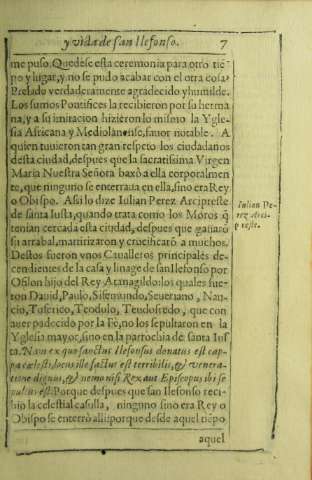 y vida de san Ilefonso. 7
me puso. Quedese esta ceremonia para otro tiē-
po y lugar, y no se pudo acabar con el otra cosa
Prelado verdaderamente agradecido y humilde.
Los sumos Pontifices la recibieron por su herma
na, y a su imitacion hizieron lo mismo la Ygle-
sia Africana y Mediolanense, fauor notable. A
quien tuuieron tan gran respeto los ciudadanos
desta ciudad, despues que la sacratissima Virgen
Maria Nuestra Señora baxò a ella corporalmen
te, que ninguno se enterraua en ella, sino era Rey
o Obispo. Assi lo dize Iulian Perez Arcipreste
de santa Iusta, quando trata como los Moros q̄
tenian cercada esta ciudad, despues que ganarō
su arrabal, martirizaron y crucificarō a muchos.
Destos fueron vnos Caualleros principales de-
cendientes de la casa y linage de san Ilefonso por
Ofilon hijo del Rey Atanagildo: los quales fue-
ron Dauid, Paulo, Sisemundo, Seueriano, Nan-
cio, Teodulo, Teudofredo, que con
auer padecido por la Fè, no los sepultaron en la
Yglesia mayor, sino en la parrochia de santa Ius
ta. Nam ex quo sanctus Ilefonsus donatus est cap-
pa cælesti, locus ille factus est terribilis, & venera-
tione dignus, & nemo nisi Rex aut Episcopus ibi se
pultus est. Porque despues que san Ilefonso reci-
bio la celestial casulla, ninguno sino era Rey o
Obispo se enterrò alli: porque desde aquel tiēpo
aquel
Iulian Pe-
rez Arci-
preste.